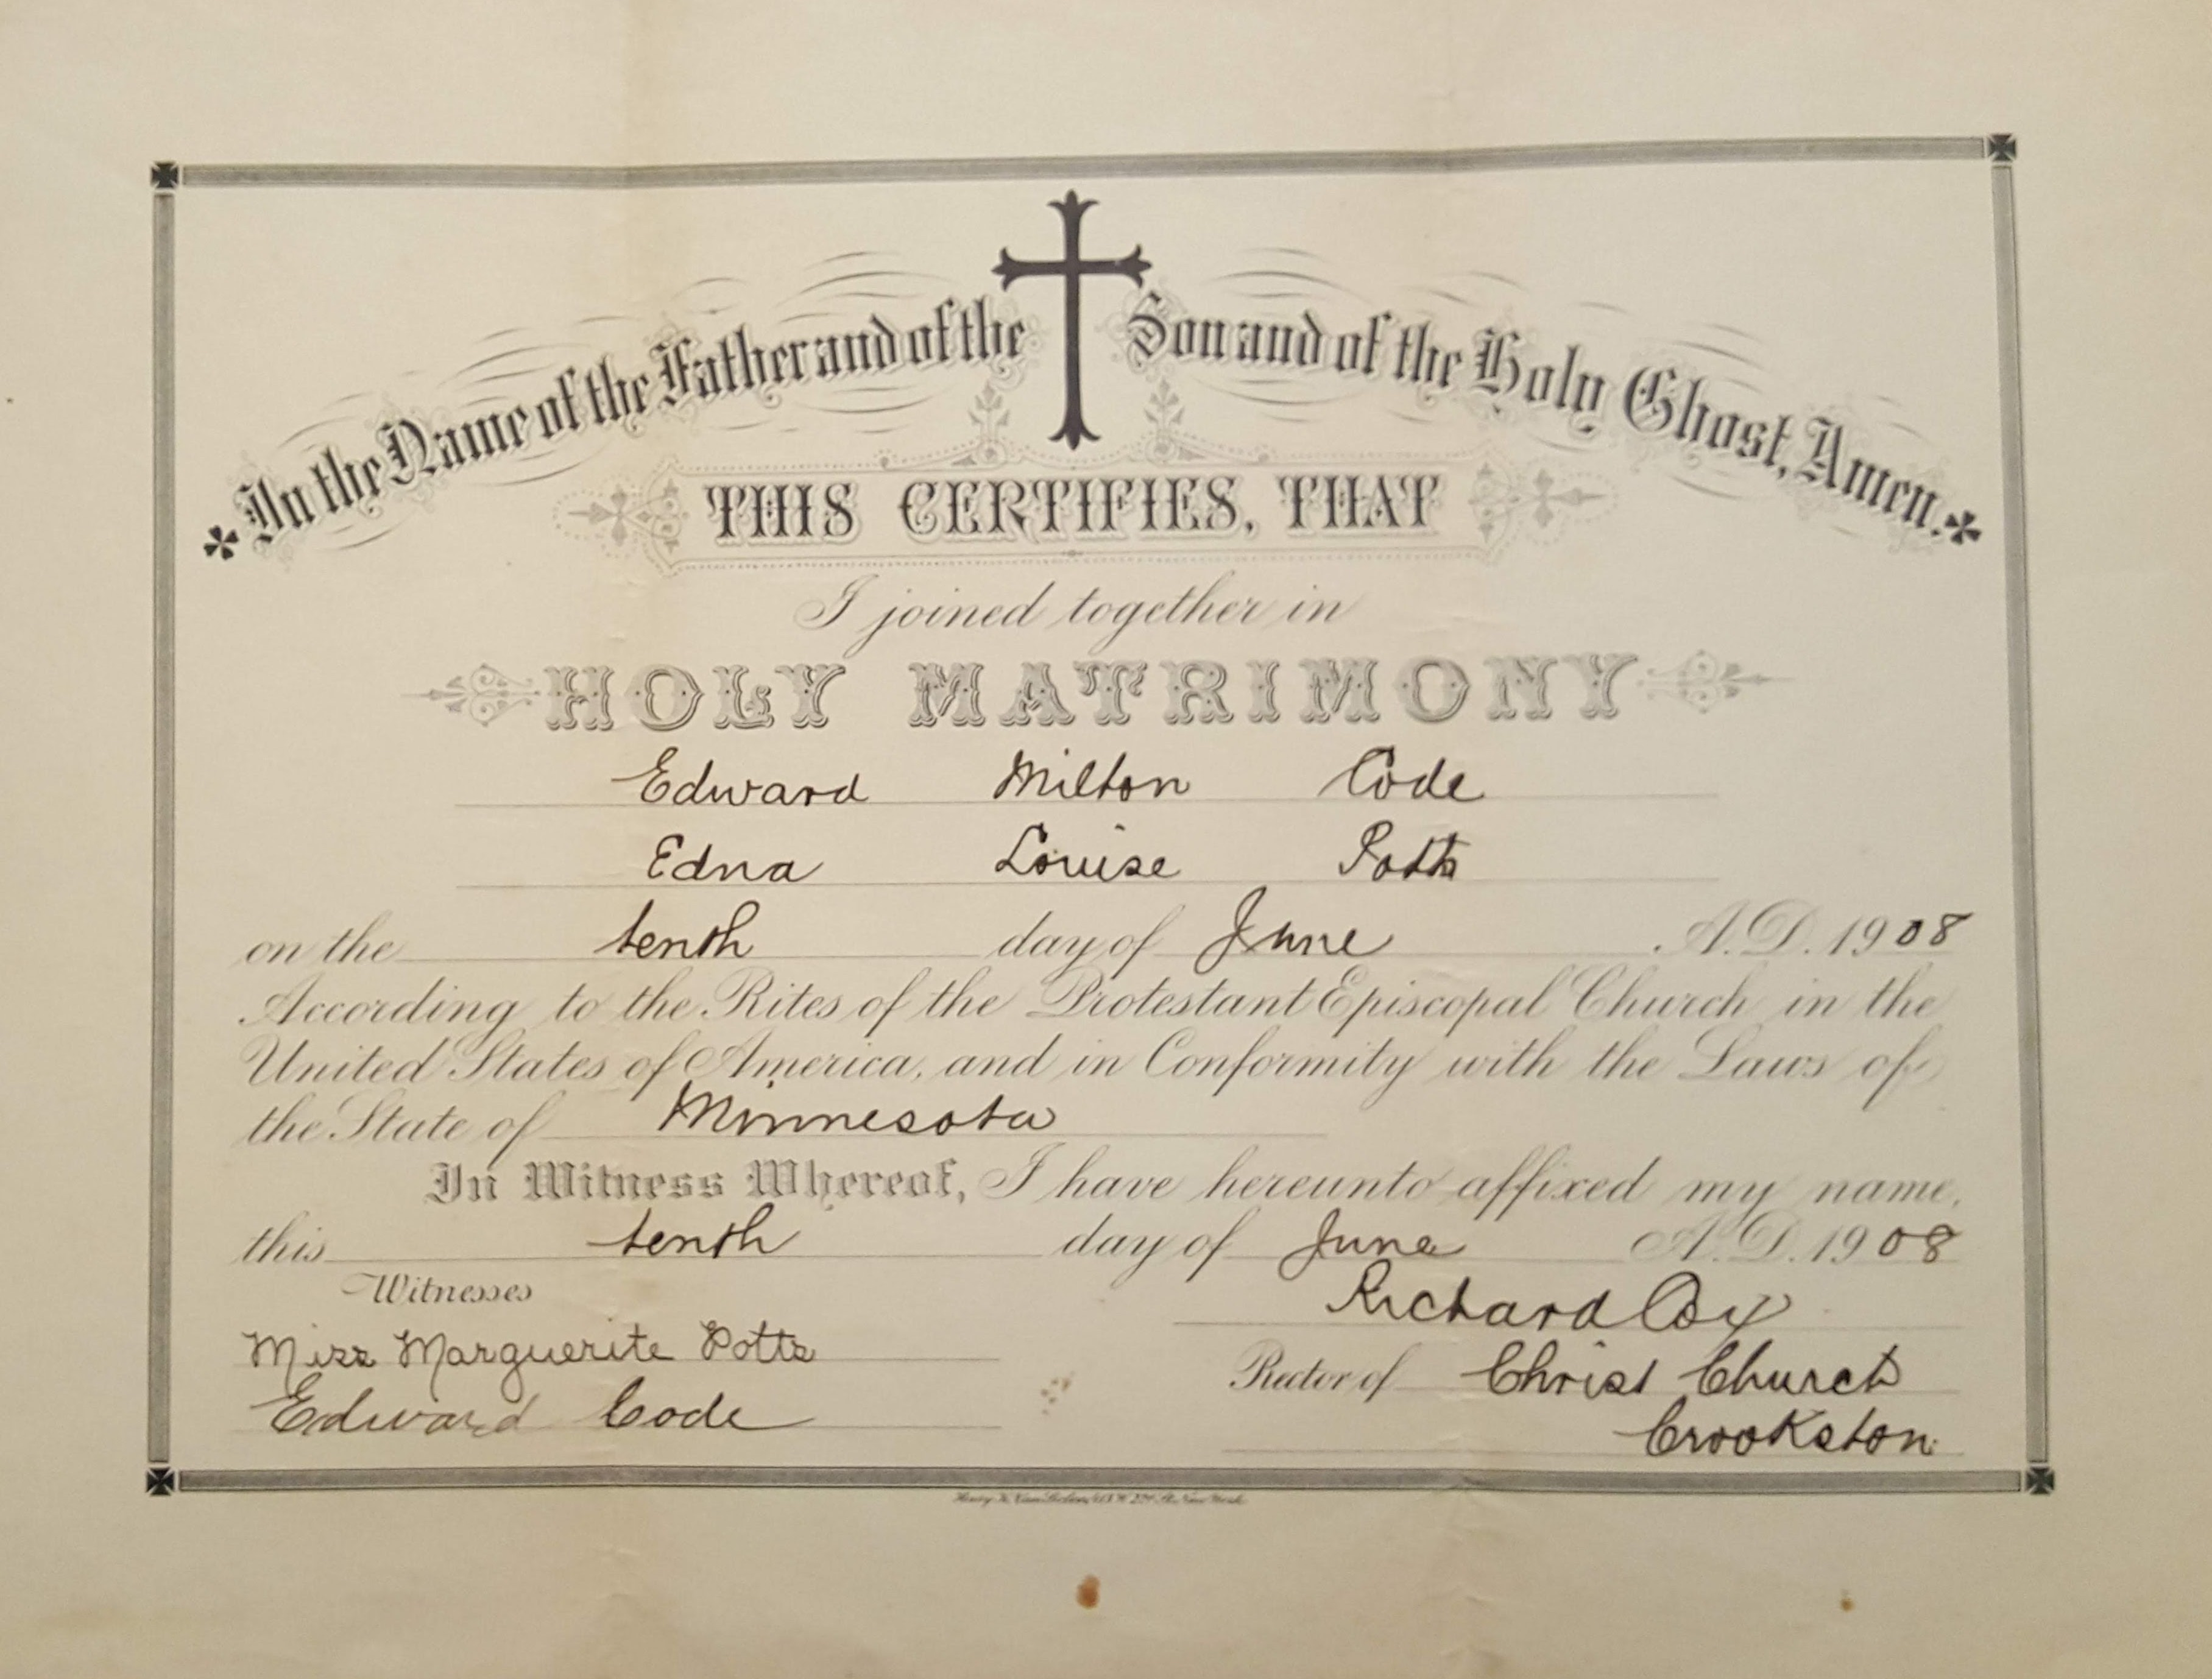 In the Name of the Father and of the Son and of the Holy Ghost, Amen.
THIS CERTIFIES, THAT
I joined together in
HOLY MATRIMONY
Edward Milton Code
Edna Louise Potts
on the tenth day of June A.D. 1908
According to the Rites of the Protestant Episcopal Church in the
United States of America, and in Conformity with the Laws of
the State of Minnesota
In Witness Whereof, I have hereunto affixed my name,
this tenth day of June A.D. 1908
Witnesses
Richard Coy
Miss Marguerite Potts
Rector of Christ Church
Edward Code
Crookston
New York